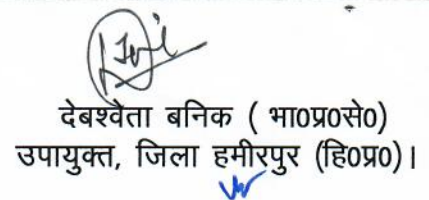 देबश्वेता बनिक ( भा०प्र०से०)
उपायुक्त, जिला हमीरपुर (हि०प्र०)।